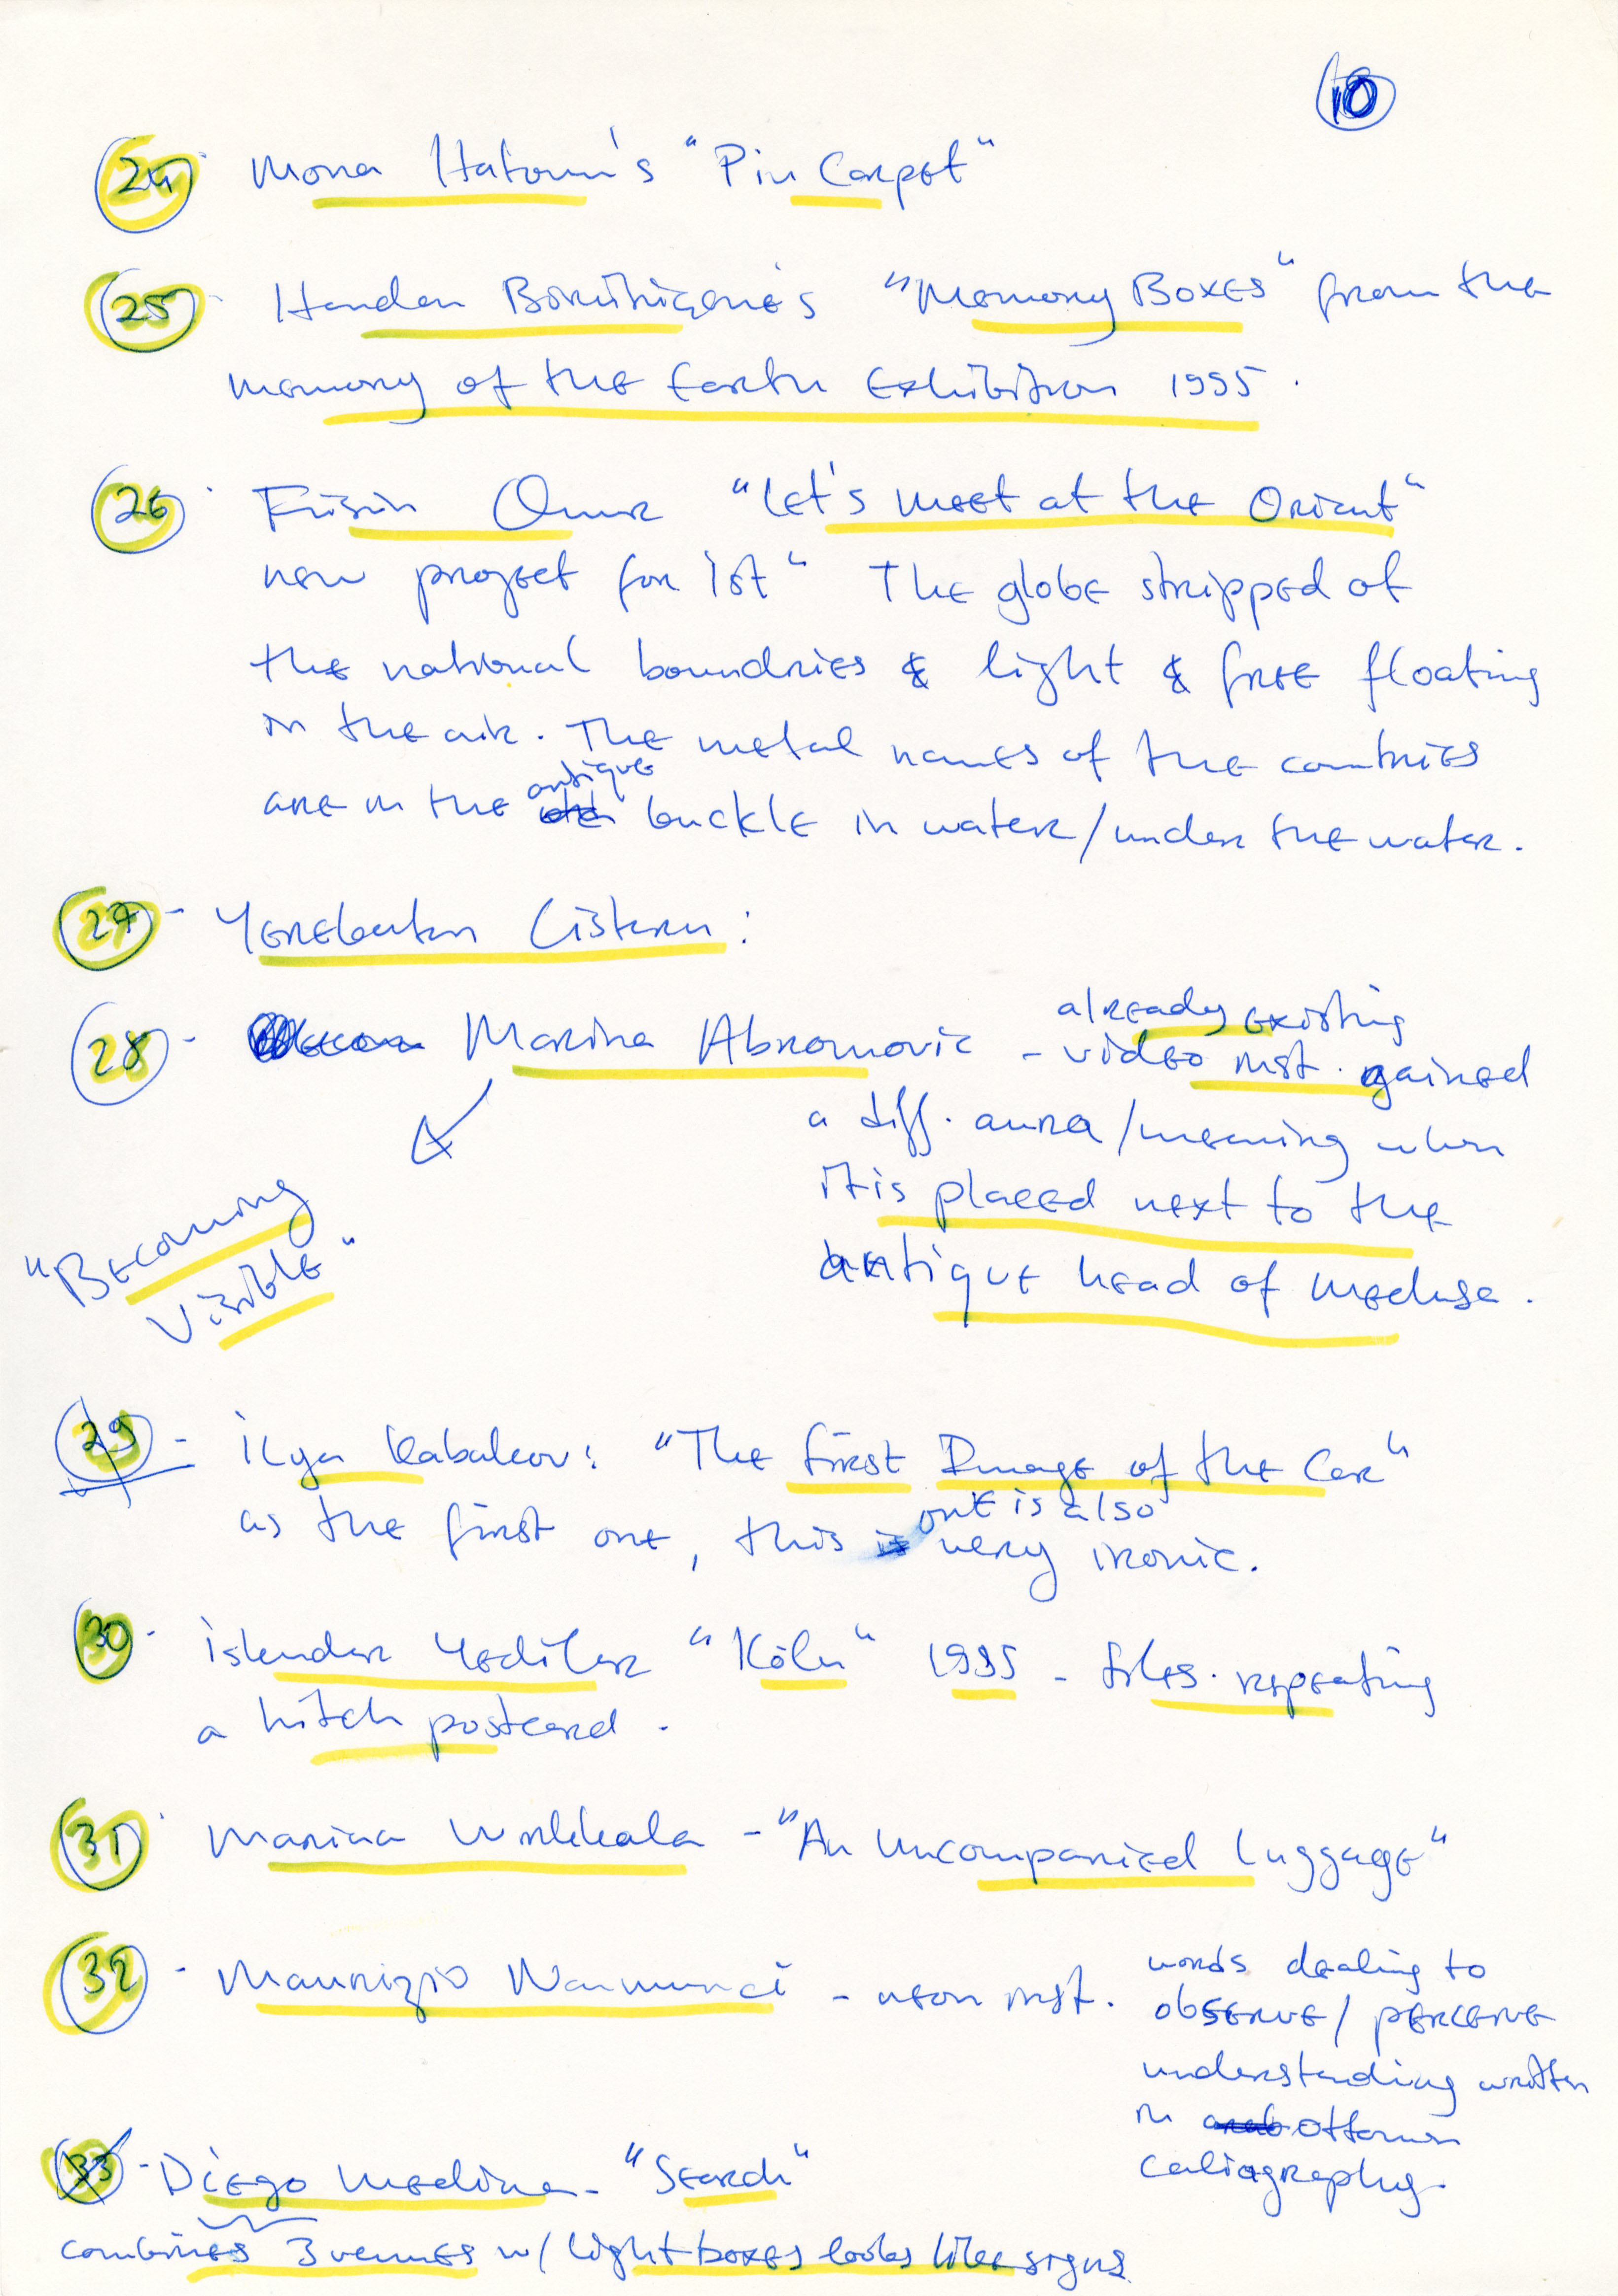 10
24. Mona Hatoum's "Pin Carpet"
25. Handan Börüteçene's "Memory Boxes" from the
memory of the Earth Exhibition 1995.
26. Füsun Onur "Let's meet at the Orient"
new project for Ist" The globe stripped of
the national boundries & light & free floating
in the air. The metal names of the countries
are in the antique buckle in water/under the water.
27- Yerebatan Cistern:
28- Marina Abromovic - already existing
video inst. gained
a diff. aura/meaning when
it is placed next to the
antique head of Medusa.
"Becoming
Visible"
29- İlya Kabakov: "The First Image of the Car"
as the first one, this one is also
very ironic.
30- İskender Yediler "Köln" 1995 - tiles. repeating
a kitch postcard.
31. Mariaa Wirkkala - "An Uncompanied Luggage"
32- Maurizio Nannucci - neon inst. words dealing to
observe/perceive
understanding written
in ottoman
caliagraphy.
33- Diego Medina - "Search"
combines 3 venues w/ light boxes looks like signs